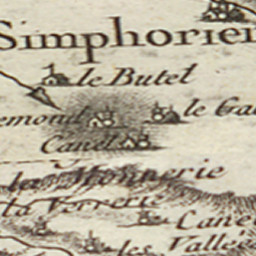 Simphorien
le Butet
emond
le Ga
Canet
la Monnerie
la Verrerie
Cane
les Vallée